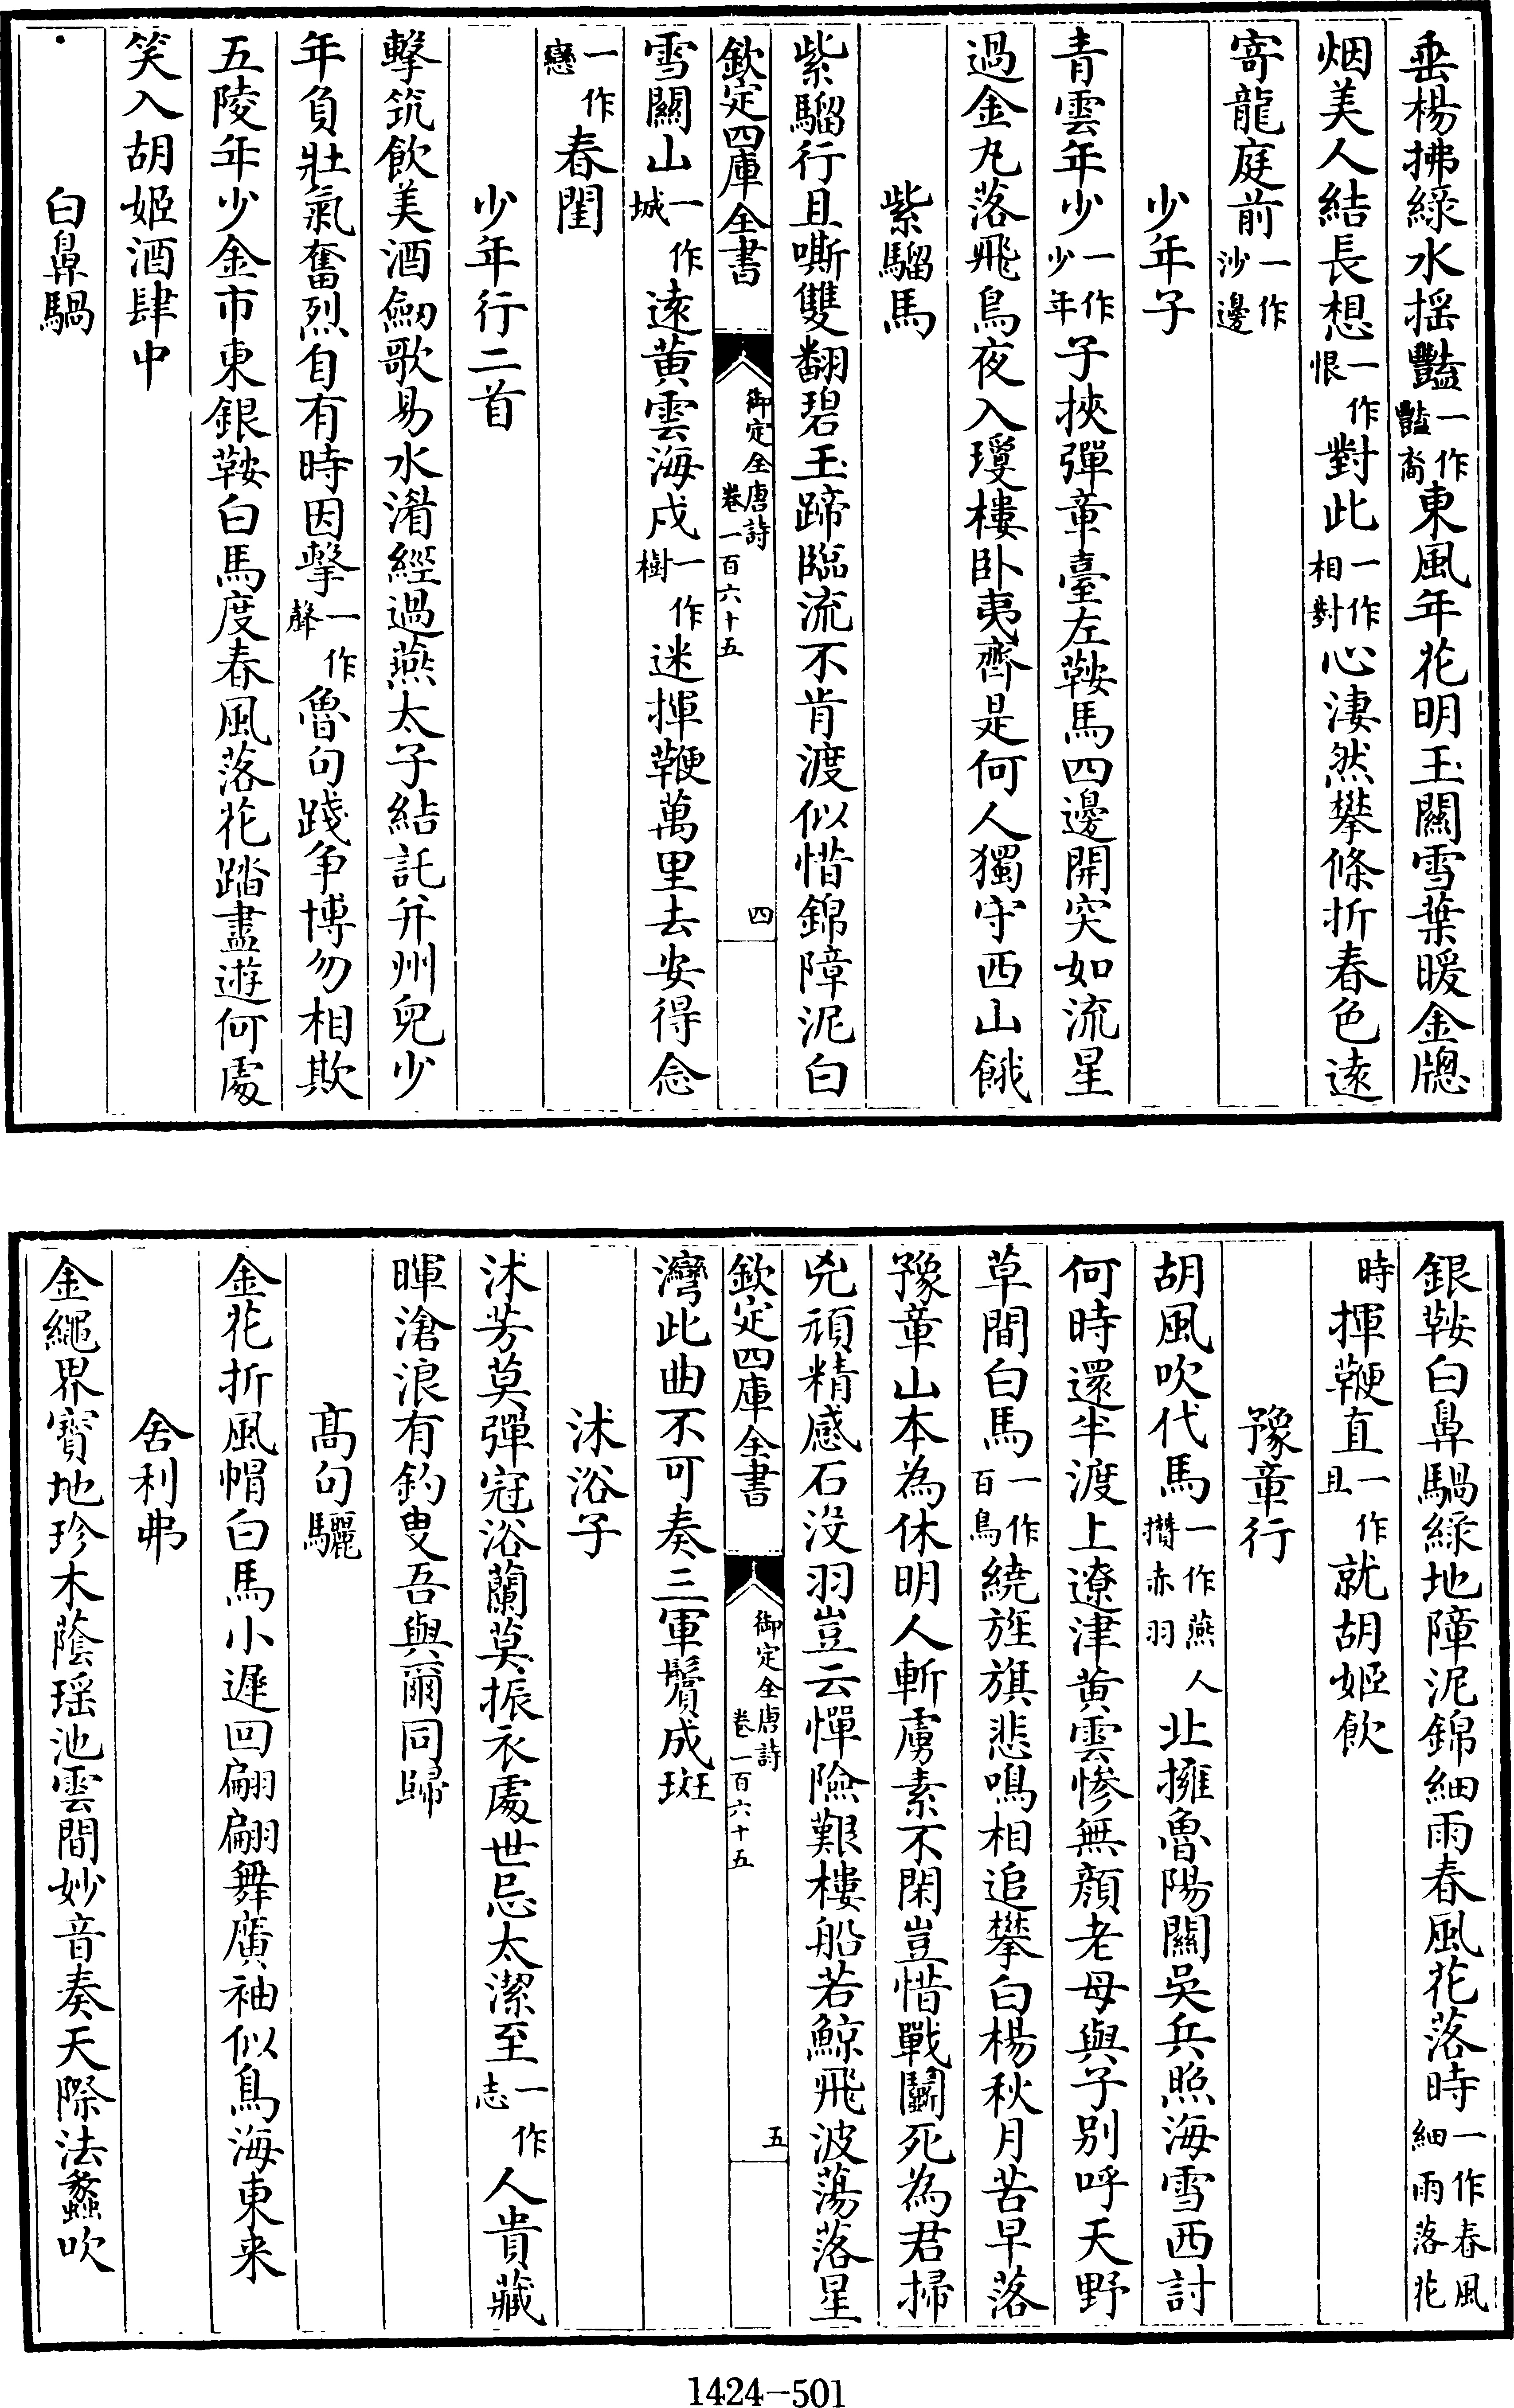 垂楊拂緑水揺豔一作豔裔東風年花明玉關雪葉暖金牕
烟美人結長想一作恨對此一作相對心淒然攀條折春色逺
寄龍庭前一作沙邊
少年子
青雲年少一作少年子挾彈章臺左鞍馬四邊開突如流星
過金丸落飛鳥夜入瓊樓卧夷齊是何人獨守西山餓
紫騮馬
紫騮行且嘶雙翻碧玉蹄臨流不肯渡似惜錦障泥白
欽定四庫全書
御定全唐詩
卷一百六十五
四
雪關山一作城逺黄雲海戍一作樹迷揮鞭萬里去安得念
一作戀春閨
少年行二首
擊筑飲美酒劒歌易水湄經過燕太子結託并州兒少
年負壯氣奮烈自有時因擊一作聲魯句踐争博勿相欺
五陵年少金市東銀鞍白馬度春風落花踏盡遊何處
笑入胡姬酒肆中
白鼻騧
銀鞍白鼻騧緑地障泥錦細雨春風花落時一作春風細雨落花
時揮鞭直一作且就胡姬飲
豫章行
胡風吹代馬一作燕人攢赤羽北擁魯陽關吳兵照海雪西討
何時還半渡上遼津黄雲慘無顔老母與子别呼天野
草間白馬一作百鳥繞旌旗悲鳴相追攀白楊秋月苦早落
豫章山本為休明人斬虜素不閑豈惜戰鬭死為君掃
兇頑精感石没羽豈云憚險艱樓船若鯨飛波蕩落星
欽定四庫全書
御定全唐詩
卷一百六十五
五
灣此曲不可奏三軍鬢成斑
沐浴子
沐芳莫彈冠浴蘭莫振衣處世忌太潔至一作志人貴藏
暉滄浪有釣叟吾與爾同歸
高句驪
金花折風帽白馬小遲回翩翩舞廣袖似鳥海東来
舍利弗
金繩界寶地珍木蔭瑶池雲間妙音奏天際法蠡吹
1424-501